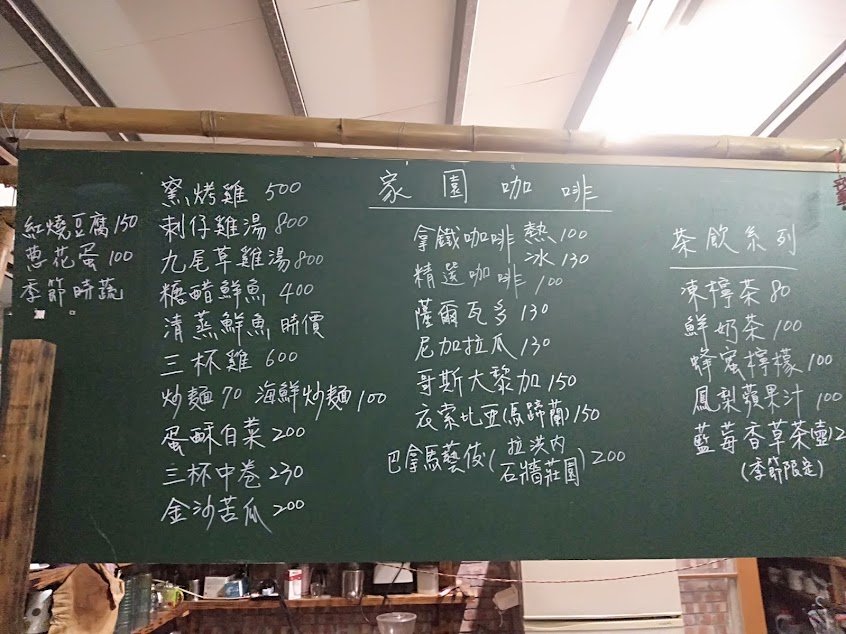 紅燒豆腐 150
蔥花蛋 100
季節時蔬
窯烤雞 500
刺仔雞湯 800
九尾草雞湯 800
糖醋鮮魚 400
清蒸鮮魚 時價
三杯雞 600
炒麵 70 海鮮炒麵 100
蛋酥白菜 200
三杯中卷 230
金沙苦瓜 200
家園咖啡
拿鐵咖啡 熱 100
冰 130
精選咖啡 100
薩爾瓦多 130
尼加拉瓜 130
哥斯大黎加 150
衣索比亞(馬蹄蘭) 150
巴拿馬藝伎(拉洪內
石牆莊園) 200
茶飲系列
凍檸茶 80
鮮奶茶 100
蜂蜜檸檬 100
鳳梨蘋果汁 100
藍莓香草茶(壺) 2
(季節限定)